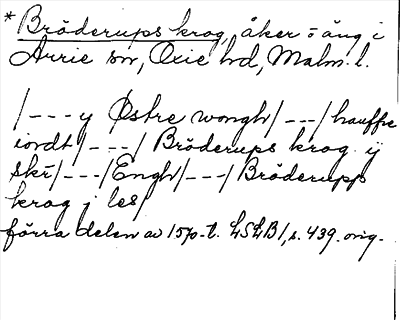 * Bröderups krog, åker o äng i
Arrie sn, Oxie hd, Malm. l.
/---y Østre wongh/---/hauffre
iordt/---/ Bröderups krog ij
skr/---/Engh/---/Bröderupps
krog j les/
förra delen av 1570-t. LSLB1, s. 439. orig.